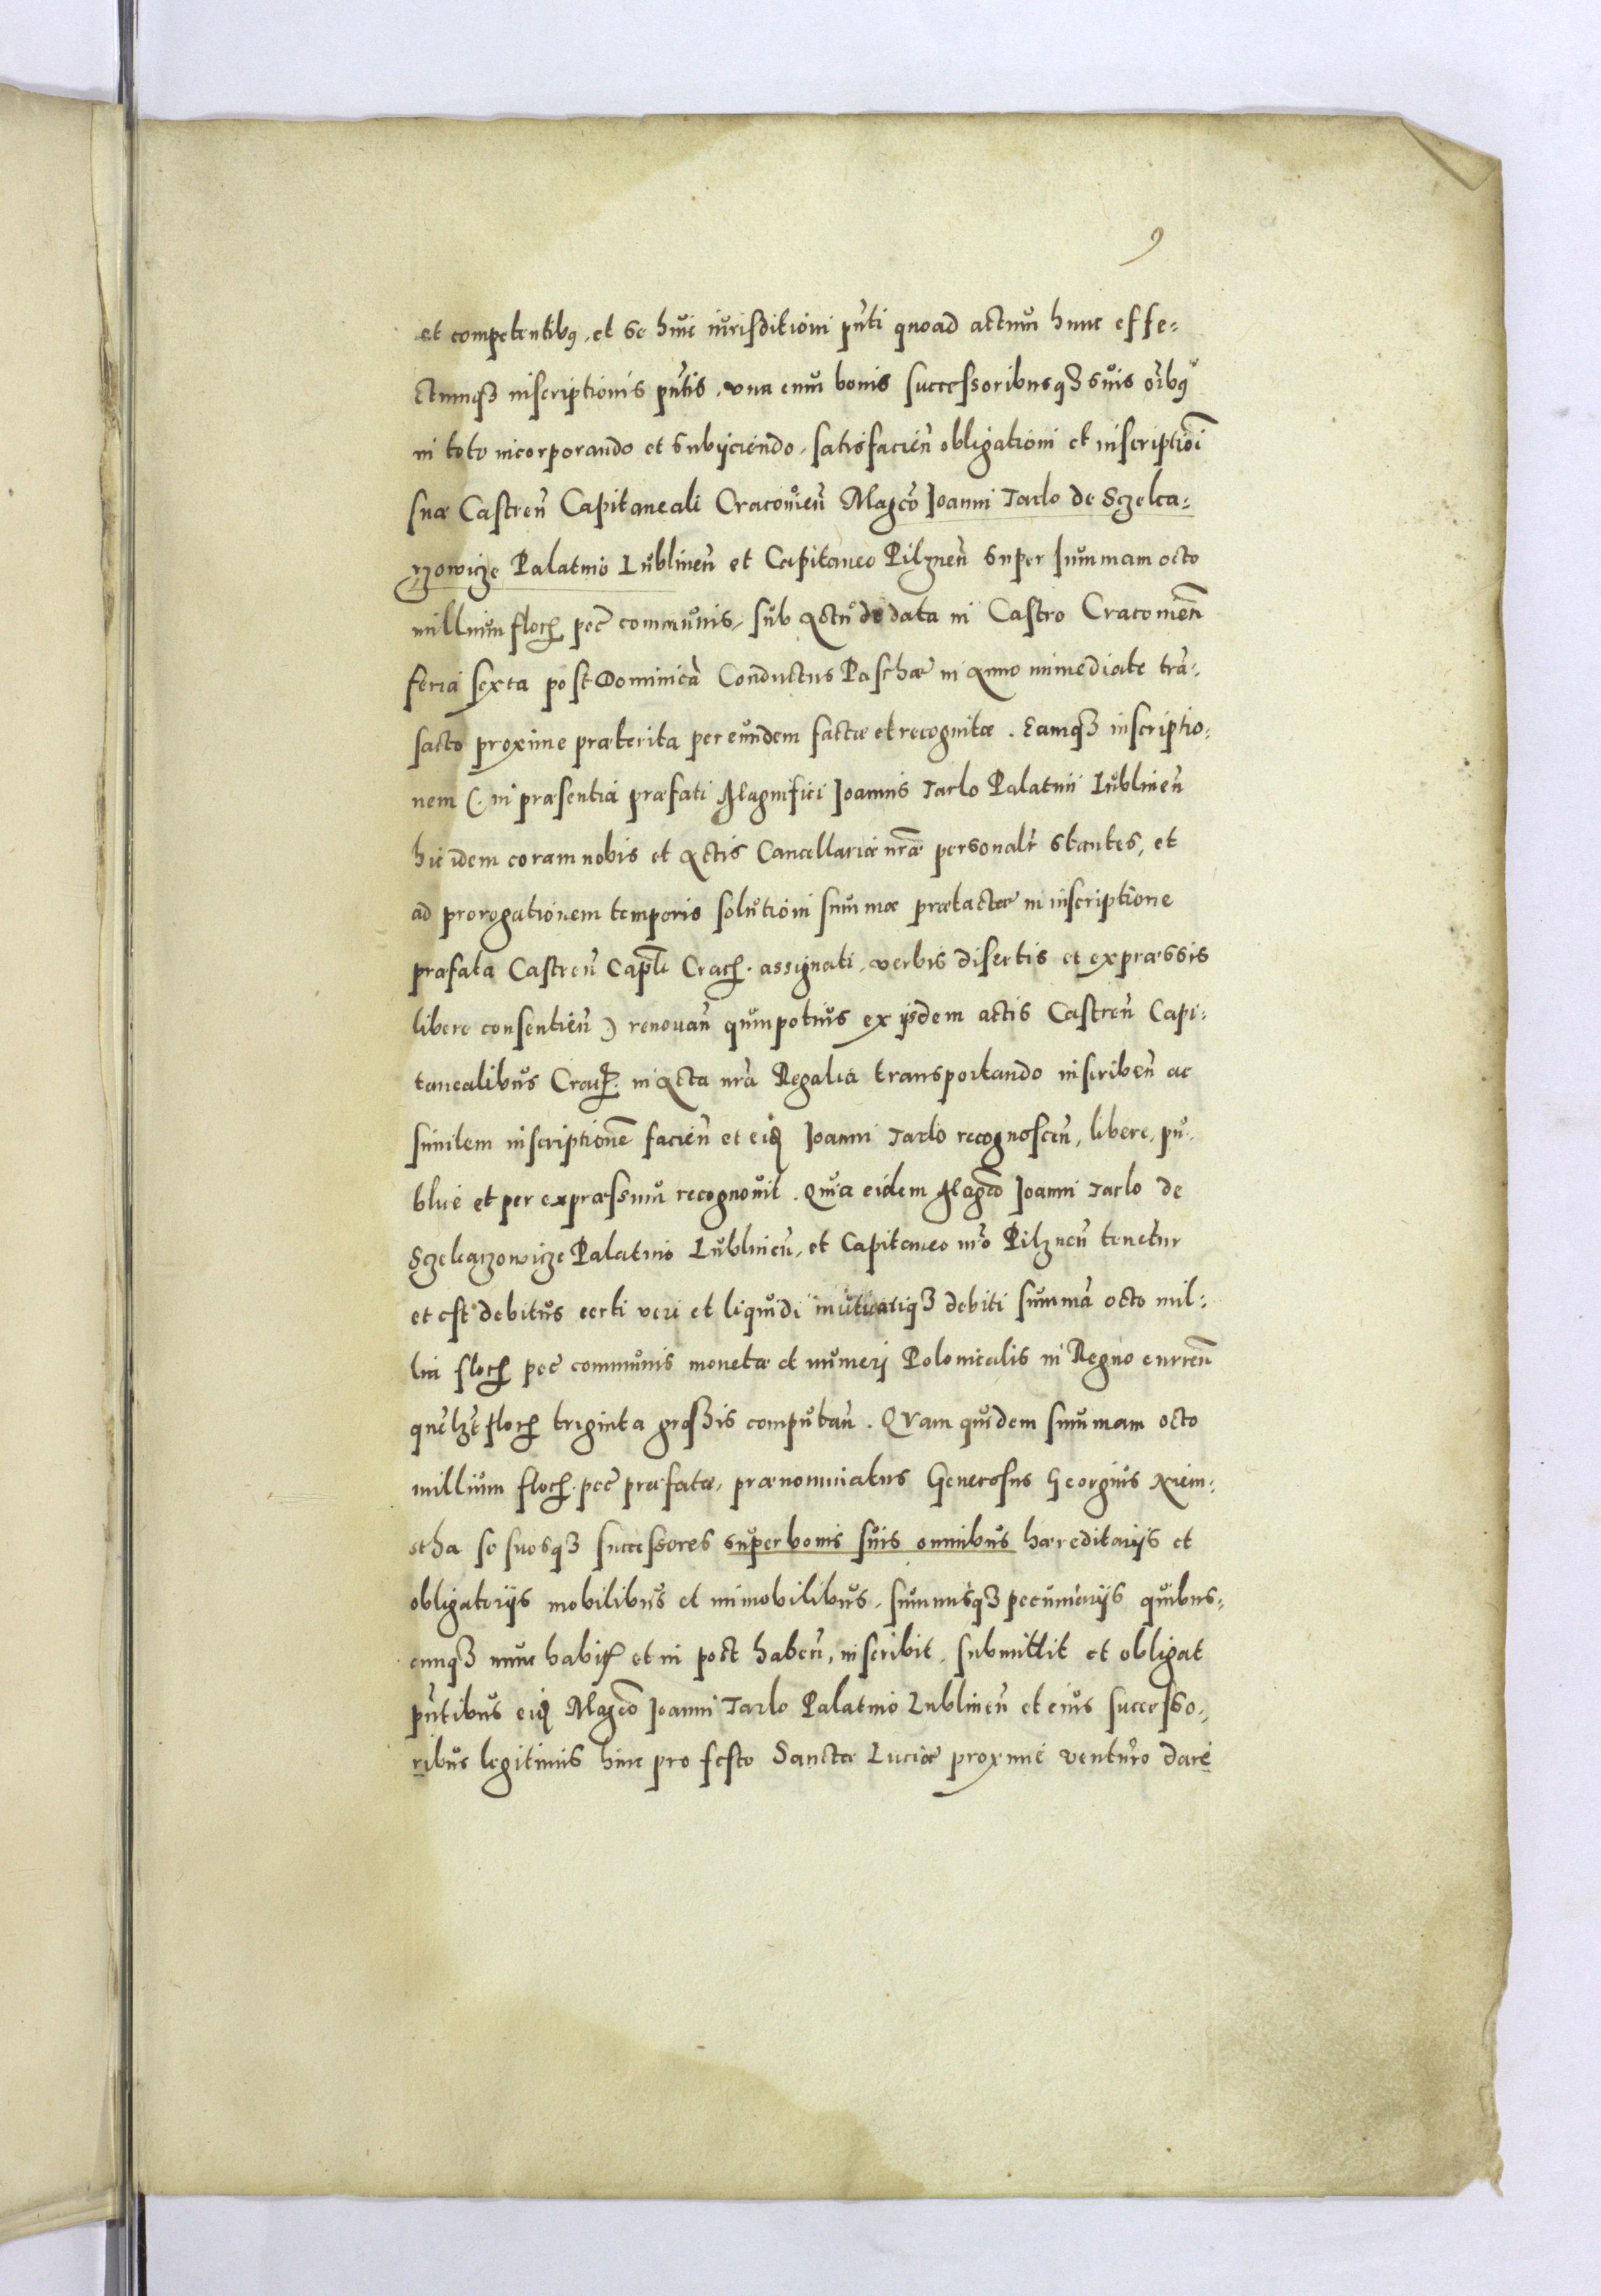 9
et competentibꝰ, et se huic iurisditioni pñti quoad actum hunc effe-
ctumqȝ inscriptionis pñtis, vna cum bonis successoribusqȝ suis oībꝰ
in toto incorporando et subijciendo, satisfacień obligationi et inscriptiōi
suæ Castreń Capitaneali Cracouień Magcō Joanni Tarlo de Sczeka-
rzowicze Palatino Lublineń et Capitaneo Pilzneń super summam octo
millium floꝝ pec̄ communis, sub actu de data in Castro Cracouień
feria sexta post Dominicā Conductus Paschæ in anno immediate trā-
sacto proxime præterita per eundem factæ et recognitæ. Eamqȝ inscriptio-
nem (. in præsentia præfati Magnifici Joannis Tarlo Palatini Lublineń
hic idem coram nobis et actis Cancellariæ nr̄æ personalr̄ stantes, et
ad prorogationem temporis solutioni summæ prætactæ in inscriptione
præfata Castreń Capl̄i Cracꝝ. assignati, verbis disertis et expræssis
libere consentień) renouań quinpotius ex ijsdem actis Castreń Capi-
tanealibus Cracꝝ. in acta nr̄a Regalia transportando inscribeń ac
similem inscriptionē facień et eidꝫ Joanni Tarlo recognosceń, libere, pu-
blice et per expræssum recognouit. Quia eidem Magcō Joanni Tarlo de
Sczekarzowicze Palatino Lublineń, et Capitaneo nr̄o Pilzneń tenetur
et est debitus certi veri et liquidi mutuatiqȝ debiti summā octo mil-
lia floꝝ pec̄ communis monetæ et numeri Polonicalis in Regno curreń
quēlȝt floꝝ triginta großis computań. Quam quidem summam octo
millium floꝝ. pec̄ præfatæ, prænominatus Generosus Georgius Niem-
stha se suosqȝ successores super bonis suis omnibus hæreditarijs et
obligatorijs mobilibus et immobilibus, summisqȝ pecuniarijs quibus-
cunqȝ nunc habitꝭ et in post habeń, inscribit, submittit et obligat
pñtibus eidꝫ Magcō Joanni Tarlo Palatino Lublineń et eius successo-
ribus legitimis hinc pro festo Sanctæ Luciæ proxime venturo dare